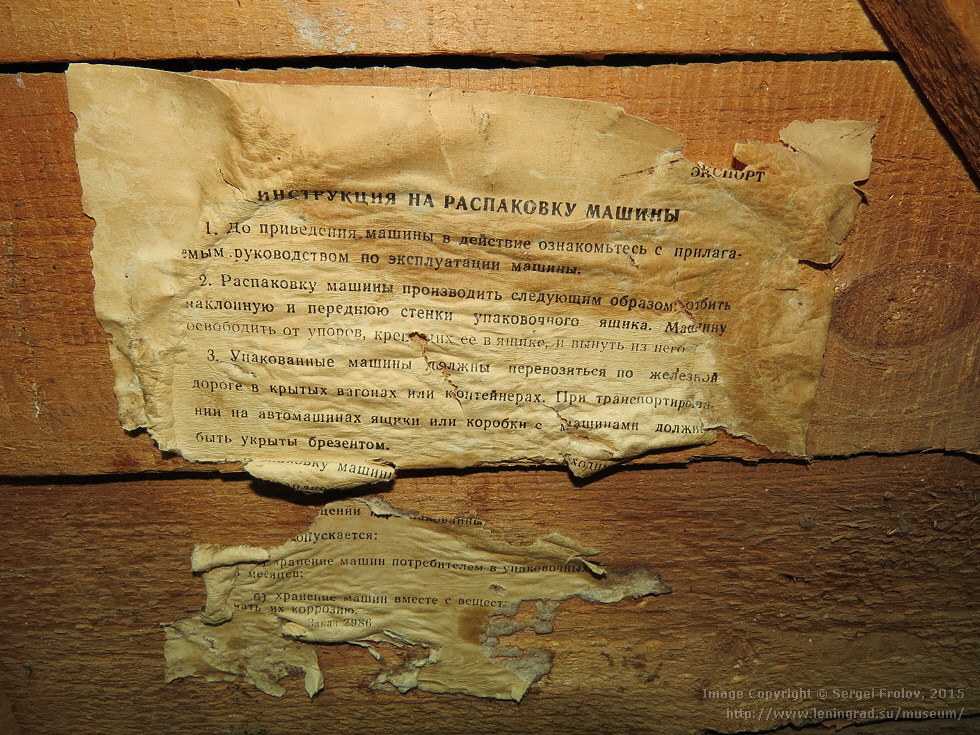 ЭКСПОРТ
ИНСТРУКЦИЯ НА РАСПАКОВКУ МАШИНЫ
1. До приведения машины в действие ознакомьтесь с прилага-
емым руководством по эксплуатации машины.
2. Распаковку машины производить следующим образом: отбить
наклонную и переднюю стенки упаковочного ящика. Машину
освободить от упоров, крепящих ее в ящике, и вынуть из него
3. Упакованные машины должны перевозяться по железной
дороге в крытых вагонах или контейнерах. При транспортирова-
нии на автомашинах ящики или коробки с машинами должны
быть укрыты брезентом.
машины
опускается:
хранение машин потребителем в упаковочных
месяцев;
б) хранение машин вместе с вещест
чать их коррозию.
Заказ 2986
Image Copyright © Sergei Frolov, 2015
http://www.leningrad.su/museum/